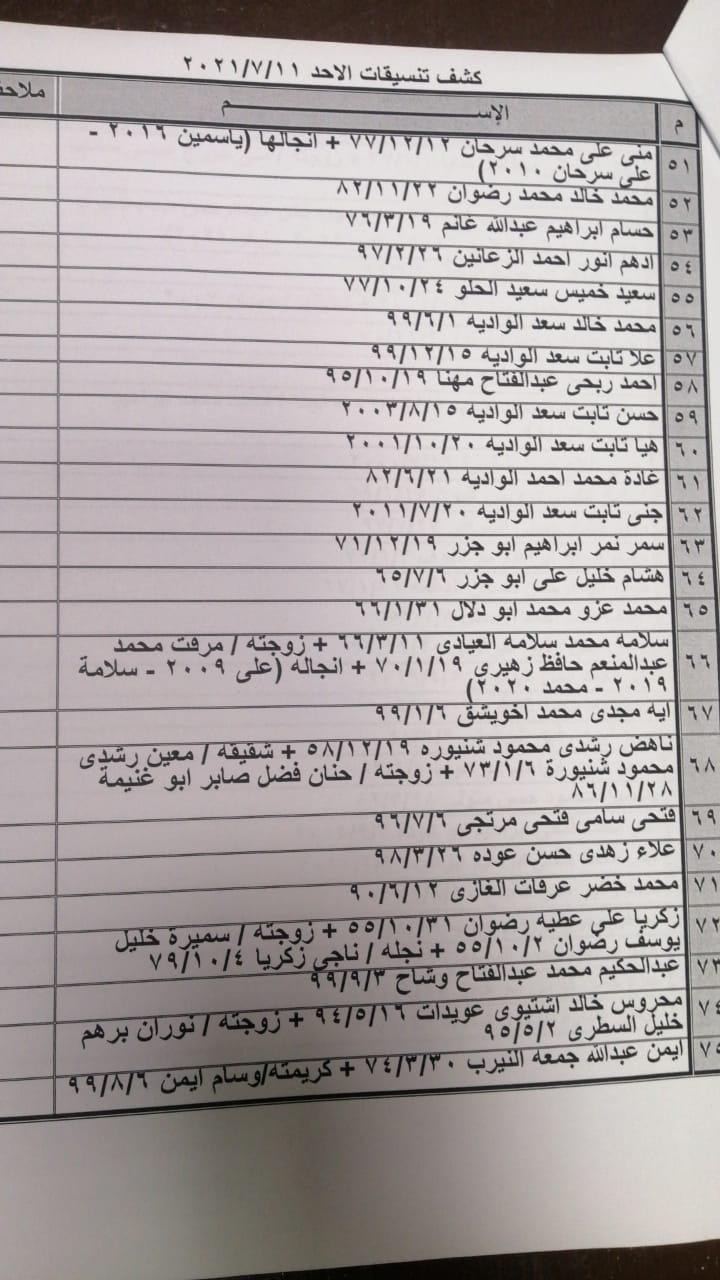 كشف تنسيقات الاحد ٢٠٢١/٧/١١
م الإســـــــــــم ملاحظ
٥١ منى على محمد سرحان ٧٧/١٢/١٢ + انجالها (ياسمين ٢٠١٦ -
على سرحان ٢٠١٠)
٥٢ محمد خالد محمد رضوان ٨٢/١١/٢٢
٥٣ حسام ابراهيم عبدالله غانم ٧٦/٣/١٩
٥٤ ادهم انور احمد الزعانين ٩٧/٢/٢٦
٥٥ سعيد خميس سعيد الحلو ٧٧/١٠/٢٤
٥٦ محمد خالد سعد الواديه ٩٩/٦/١
٥٧ علا ثابت سعد الواديه ٩٩/١٢/١٥
٥٨ احمد ربحى عبدالفتاح مهنا ٩٥/١٠/١٩
٥٩ حسن ثابت سعد الواديه ٢٠٠٣/٨/١٥
٦٠ هيا ثابت سعد الواديه ٢٠٠١/١٠/٢٠
٦١ غادة محمد احمد الواديه ٨٢/٦/٢١
٦٢ جنى ثابت سعد الواديه ٢٠١١/٧/٢٠
٦٣ سمر نمر ابراهيم ابو جزر ٧١/١٢/١٩
٦٤ هشام خليل على ابو جزر ٦٥/٧/٦
٦٥ محمد عزو محمد ابو دلال ٦٦/١/٣١
٦٦ سلامه محمد سلامه العيادى ٦٦/٣/١١ + زوجته / مرفت محمد
عبدالمنعم حافظ زهيرى ٧٠/١/١٩ + انجاله (على ٢٠٠٩ - سلامة
٢٠١٩ - محمد ٢٠٢٠)
٦٧ ايه مجدى محمد اخويشق ٩٩/١/٦
٦٨ ناهض رشدى محمود شنيوره ٥٨/١٢/١٩ + شقيقه / معين رشدى
محمود شنيورة ٧٣/١/٦ + زوجته / حنان فضل صابر ابو غنيمة
٨٦/١١/٢٨
٦٩ فتحى سامى فتحى مرتجى ٩٦/٧/٦
٧٠ علاء زهدى حسن عوده ٩٨/٣/٢٦
٧١ محمد خضر عرفات الغازى ٩٠/٦/١٢
٧٢ زكريا على عطيه رضوان ٥٥/١٠/٣١ + زوجته / سميرة خليل
يوسف رضوان ٥٥/١٠/٢ + نجله / ناجى زكريا ٧٩/١٠/٤
٧٣ عبدالحكيم محمد عبدالفتاح وشاح ٩٩/٩/٣
٧٤ محروس خالد اشتيوى عويدات ٩٤/٥/١٦ + زوجته / نوران برهم
خليل السطرى ٩٥/٥/٢
٧٥ ايمن عبدالله جمعه النيرب ٧٤/٣/٣٠ + كريمته/وسام ايمن ٩٩/٨/٦